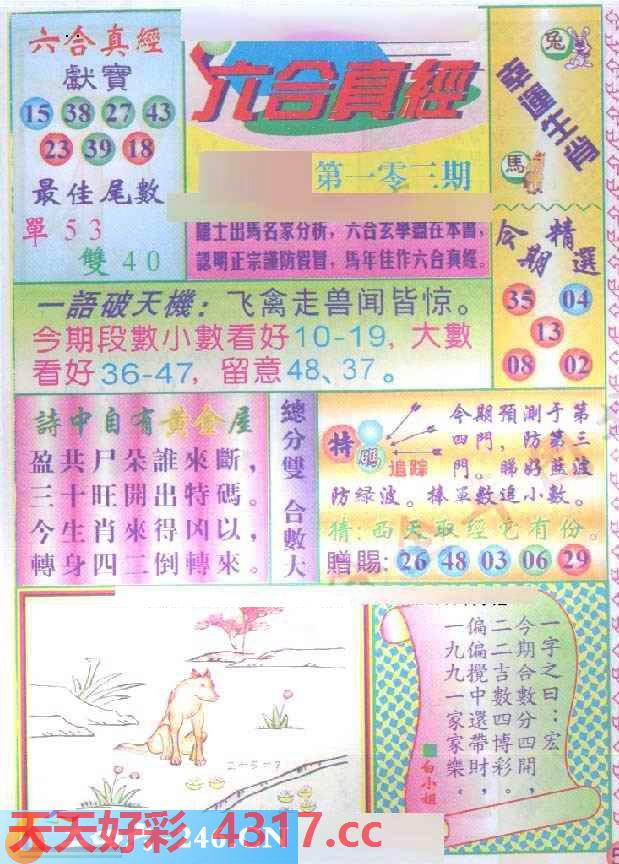 六合真經
獻寶
15 38 27 43
23 39 18
最佳尾數
單53
雙40
六合真經
第一零三期
隱士出馬名家分析，六合玄學盡在本書，
認明正宗謹防假冒，馬年佳作六合真經。
兔
馬
幸運生肖
今期精選
35 04
13
08 02
一語破天機：飞禽走兽闻皆惊。
今期段數小數看好10-19，大數
看好36-47，留意48、37。
詩中自有黃金屋
盈共尸朵誰來斷，
三十旺開出特碼。
今生肖來得凶以，
轉身四二倒轉來。
總分雙 合數大
特
碼
追踪
今期預測于第
四門，防第三
門。睇好藍波
防綠波。捧單數追小數。
猜：西天取經它有份。
贈賜：26 48 03 06 29
2-5-7
一字之曰：宏
今期合數分四開，
二二吉數四博彩。
偏偏攪中還帶財，
一九九一家家樂。
白小姐
246.CN
天天好彩 4317.cc